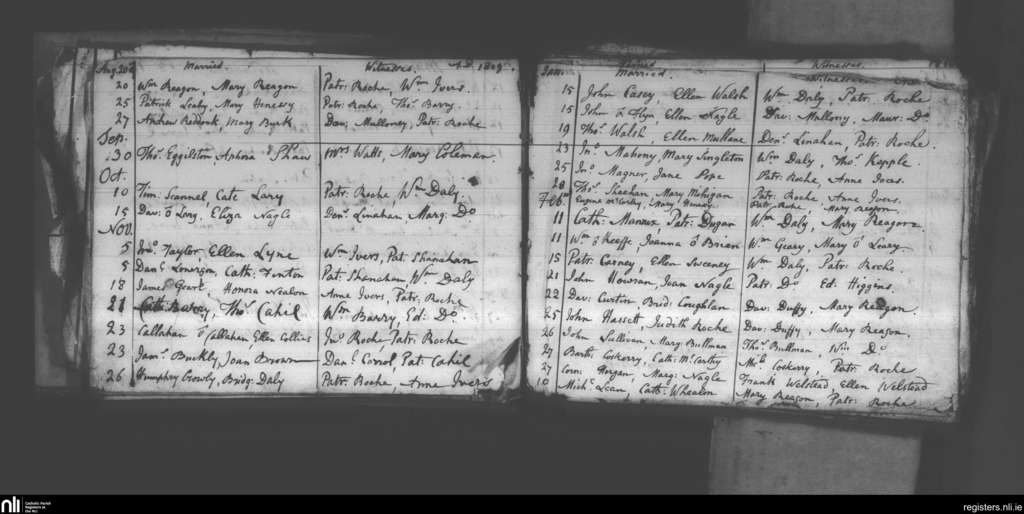 Aug. Married. Witnesses. A.D. 1809.
20 Wm Reagon, Mary Reagon Patr: Roche, Wm Ivers.
25 Patrick Leahy, Mary Henesy Patr: Roche, Thos. Barry.
27 Andrew Mary Burk Dav: Mulloney, Patr: Roche
Sep.
30 Thos. Eggilston Aphora Shaw Mrs Watts, Mary Coleman.
Oct.
10 Tim: Scannel Cate Lary Patr: Roche Wm Daly.
15 Dav: ō Long, Eliza Nagle Den: Linahan Marg: Do
Nov.
5 Jno. Taylor, Ellen Lyne Wm Ivers, Pat: Shanahan
5 Danl Lonergon, Cath: Finton Pat: Shanahan, Wm Daly
18 James Honora Nealon Anne Ivers, Patr: Roche
21 Cath: Thos. Cahil Wm Barry, Ed: Do.
23 Callahan ō Callahan, Ellen Collins Jno. Roche Patr: Roche
23 Jams. Buckly, Joan Brown Danl Conol, Pat: Cahil
26 Humphry Crowly, Bridg: Daly Patr: Roche, Anne Ivers
Jan. Married. Witnesses
15 John Casey, Ellen Walsh Wm Daly, Patr: Roche
15 John ō Flyn Ellen Nagle Dav: Mallony, Maur: Do
19 Thos. Walsh, Ellen Mullane Den: Linahan, Patr: Roche.
23 Jno. Mahony, Mary Singleton Wm Daly, Thos. Kepple.
25 Jno. Magner, Jane Pope Patr: Roche, Anne
28 Thos. Sheehan Mary Mihigan Patr: Roche Anne Ivers.
Feb. Eugene Mary Patr: Roche Mary Reagon
11 Cath: Patr: Dugan Wm Daly, Mary Reagon.
11 Wm ō Keeffe Joanna ō Brian Wm Geary, Mary ō Leary.
15 Patr: Carney, Ellen Sweeney Wm Daly, Patr: Roche.
21 John Houran, Joan Nagle Patr: Do Ed: Higgins.
22 Dav: Curtin Brid: Coughlan Dav: Duffy, Mary Reagon.
25 John Hassett, Judith Roche Dav: Duffy, Mary Reagon.
26 John Sullivan Mary Bullman Thos. Bullman, Wm Do
27 Barth: Coskerry, Cath: McCarthy Mich Coskerry, Patr: Roche
27 Corn: Horgan, Marg: Nagle Frank Welstead, Ellen Welstead
10 Mich: Lean, Cath: Whealon Mary Reagon, Patr: Roche
nli Catholic Parish Registers at the NLI
registers.nli.ie